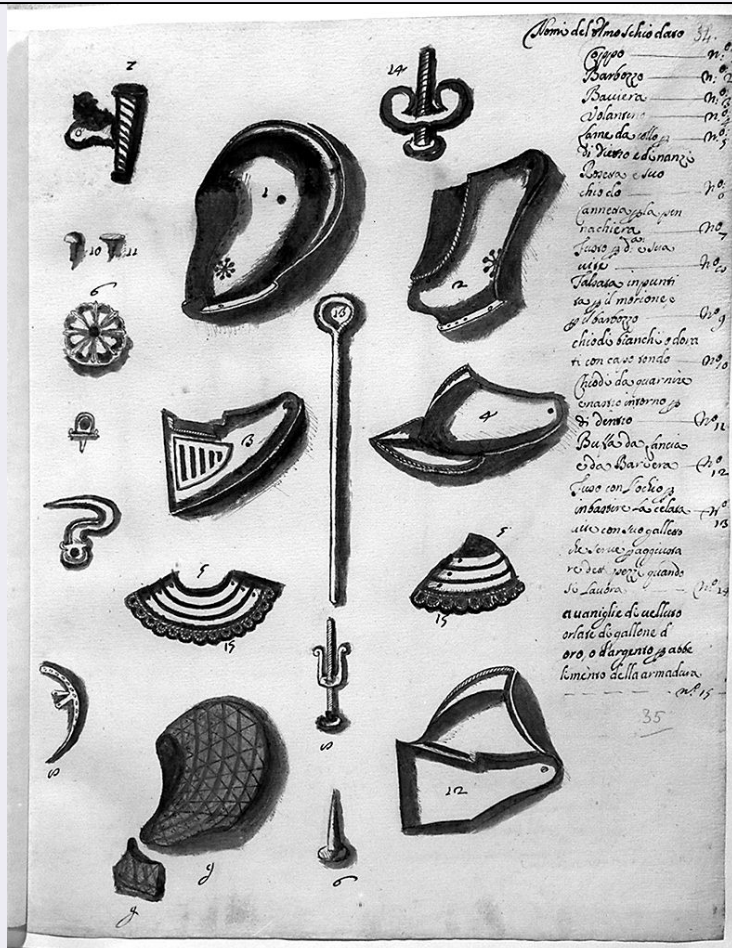 Nomi del Elmo schiodato 34.
Coppo n.º 1
Barbozzo n.º 2
Baviera n.º 3
Volantino n.º 4
Lame da collo p n.º 5
di dietro e dinanzi
Rosetta e suo
chiodo n.º 6
Cannetta p la pen
nachiera n.º 7
Fusto p
vite
Falsata inpunti
ta p il morione e
p il barbozzo n.º 9
chiodi bianchi o dora
ti con capo tondo n.º 10
Chiodi da guarnire
e nastro intorno p
di dentro n.º 11
Buffa da lancia
e da Barriera n.º 12
Fuso con l'ochio p
inbastire la celata n.º 13
vite con suo galletto
che serve p aggiusta
re dett pezzi quando
si lavora n.º 14
di velluto
orlate di gallone d
oro, o d'argento p abbe
limento della armadura
n.º 15
35
7
14
1
10 11
2
6
13
3
4
5
15
5
15
8
8
12
9
9
6